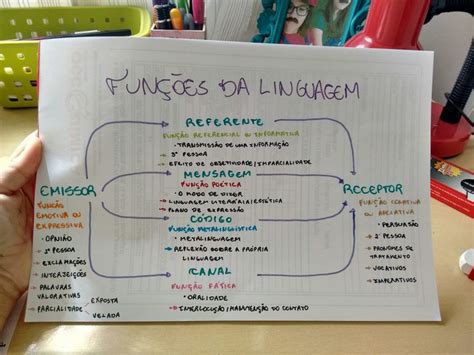 FUNÇÕES DA LINGUAGEM
REFERENTE
FUNÇÃO REFERENCIAL OU INFORMATIVA
• TRANSMISSÃO DE UMA INFORMAÇÃO
• 3ª PESSOA
• EFEITO DE OBJETIVIDADE/IMPARCIALIDADE
MENSAGEM
FUNÇÃO POÉTICA
• O MODO DE DIZER
• LINGUAGEM LITERÁRIA/ESTÉTICA
• PLANO DE EXPRESSÃO
CÓDIGO
FUNÇÃO METALINGUÍSTICA
• METALINGUAGEM
• REFLEXÃO SOBRE A PRÓPRIA
LINGUAGEM
CANAL
FUNÇÃO FÁTICA
• ORALIDADE
• INTERLOCUÇÃO/MANUTENÇÃO DO CONTATO
EMISSOR
FUNÇÃO
EMOTIVA OU
EXPRESSIVA
• OPINIÃO
• 1ª PESSOA
• EXCLAMAÇÕES
• INTERJEIÇÕES
• PALAVRAS
VALORATIVAS
• PARCIALIDADE
EXPOSTA
VELADA
RECEPTOR
FUNÇÃO CONATIVA
OU APELATIVA
• PERSUASÃO
• 2ª PESSOA
• PRONOMES DE
TRATAMENTO
• VOCATIVOS
• IMPERATIVOS